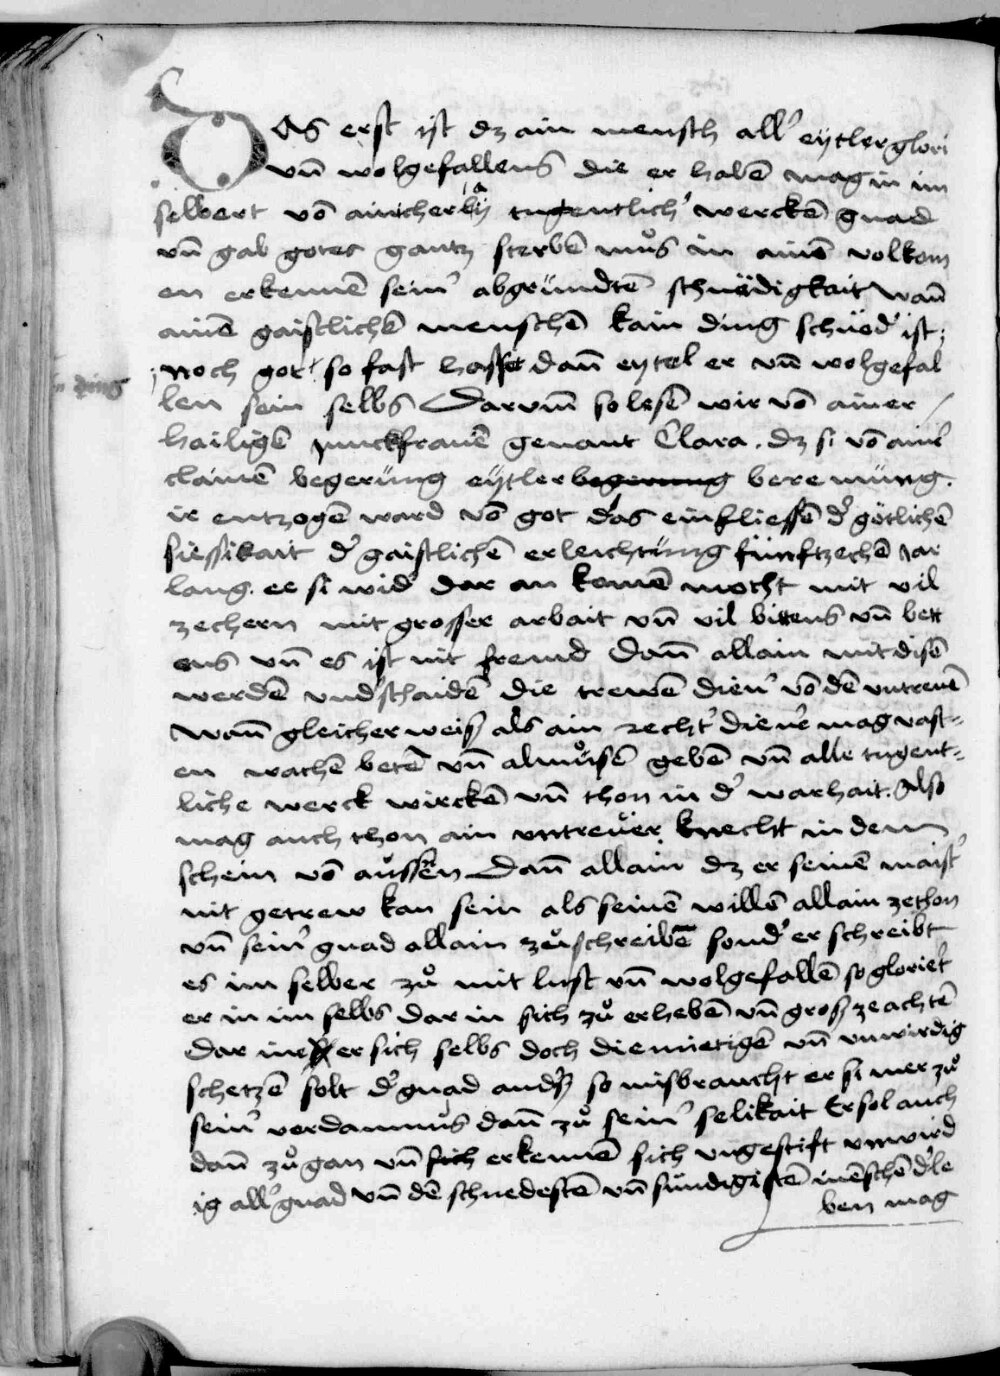 DAs erst ist dz ain mensch all' eytler glori
vn̄ wolgefallens die er habē mag in im
selbert vō aincherlaÿ tugentlich' werckē gnad
vn̄ gab gotes gantz sterbē můs in ainē volkom
en erkennē sein' abgründtē schnädigkait wan̄
ainē gaistlichē menschē kain ding schnöd' ist
noch got so fast hasset dan̄ eytel er vn̄ wolgefal
len sein selbs Darvm̄ so lesē wir vō ainer
hailigē junckfrawē genant Clara . dz si vō ain'
clainē begerūng eÿtler begerung beremūng.
ir entzogē ward vō got das einfliessē d' götlichē
siessikait d' gaistlichē erleichtūng fünftzechē jar
lang . ee si wid' dar an komē mocht mit vil
zechern mit grosser arbait vn̄ vil bittens vn̄ bett
ens vn̄ es ist nit fremd Dan̄ allain mit disē
werdē vnd'schaidē die trewē dien' vō dē vntrewē
Wan̄ gleicher weiß als ain recht' diene' mag vast=
en wachē betē vn̄ almůsē gebē vn̄ alle tugent=
liche werck wirckē vn̄ thon in d' warhait . Also
mag auch thon ain vntrewer knecht in dem
schein vō aussen Dan̄ allain dz er seinē maist'
nit getrew kan sein als seinē willē allain zethon
vn̄ sein' gnad allain zůschreibē sond' er schreibt
es im selber zů mit lust vn̄ wolgefallē so gloriert
er in im selbs dar in sich zů erhebē vn̄ groß zeachtē
Dar in er sich selbs doch diemietigē vn̄ vnwirdig
schetzē solt d' gnad and's so misbraucht er si mer zů
sein' verdamnus dan̄ zů sein' selikait Er sol auch
dan̄ zů gan vn̄ sich erkennē sich vngestift vnwird
ig all' gnad vn̄ dē schnedestē vn̄ sündigistē menschē d' le
ben mag